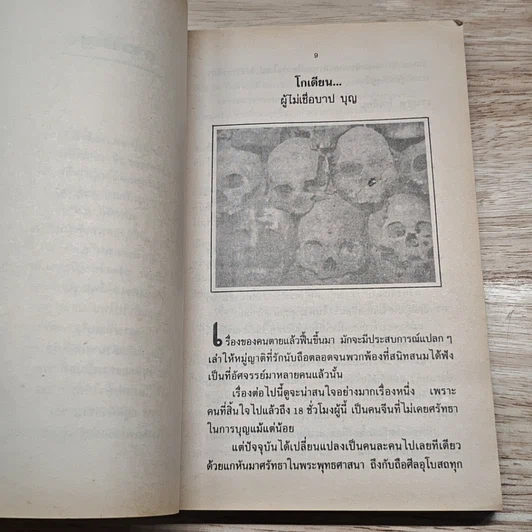 9
โกเตียน...
ผู้ไม่เชื่อบาป บุญ
เรื่องของคนตายแล้วฟื้นขึ้นมา มักจะมีประสบการณ์แปลก ๆ
เล่าให้หมู่ญาติที่รักนับถือตลอดจนพวกพ้องที่สนิทสนมได้ฟัง
เป็นที่อัศจรรย์มาหลายคนแล้วนั้น
เรื่องต่อไปนี้ดูจะน่าสนใจอย่างมากเรื่องหนึ่ง เพราะ
คนที่สิ้นใจไปแล้วถึง 18 ชั่วโมงผู้นี้ เป็นคนจีนที่ไม่เคยศรัทธา
ในการบุญแม้แต่น้อย
แต่ปัจจุบันได้เปลี่ยนแปลงเป็นคนละคนไปเลยทีเดียว
ด้วยแกหันมาศรัทธาในพระพุทธศาสนา ถึงกับถือศีลอุโบสถทุก